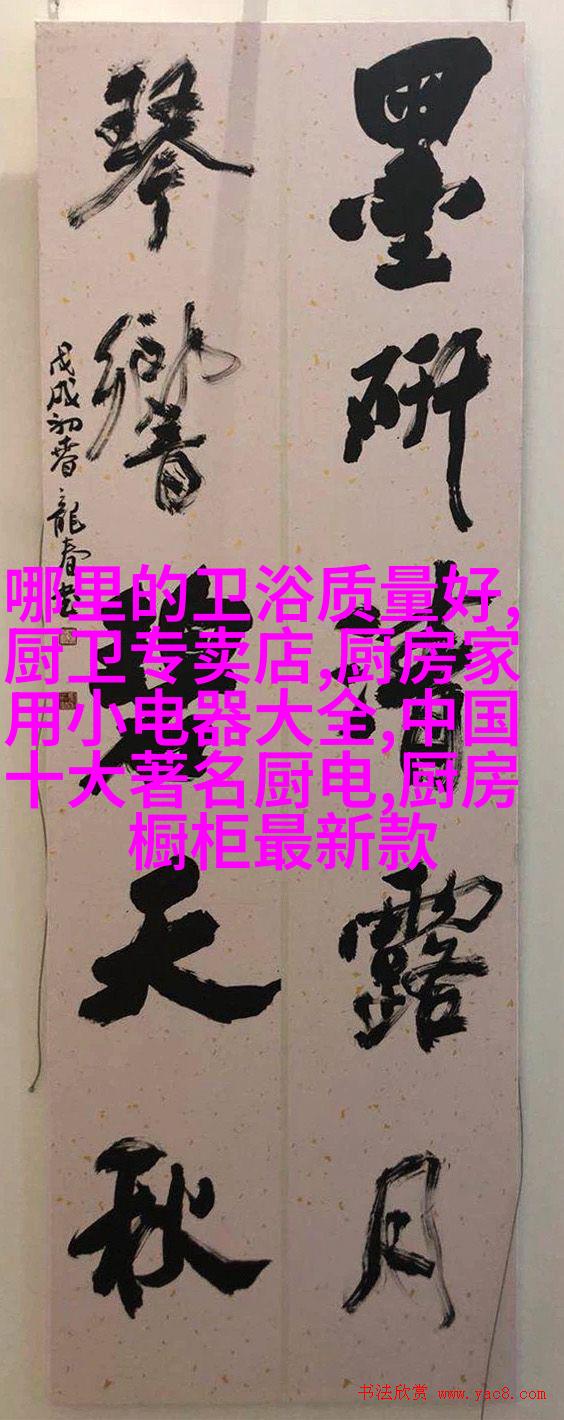 墨研清露月
琴響碧天秋
戊戌初春龍春書
哪里的卫浴质量好,
厨卫专卖店,厨房家
用小电器大全,中国
十大著名厨电,厨房
橱柜最新款
书法欣赏 www.yac8.com